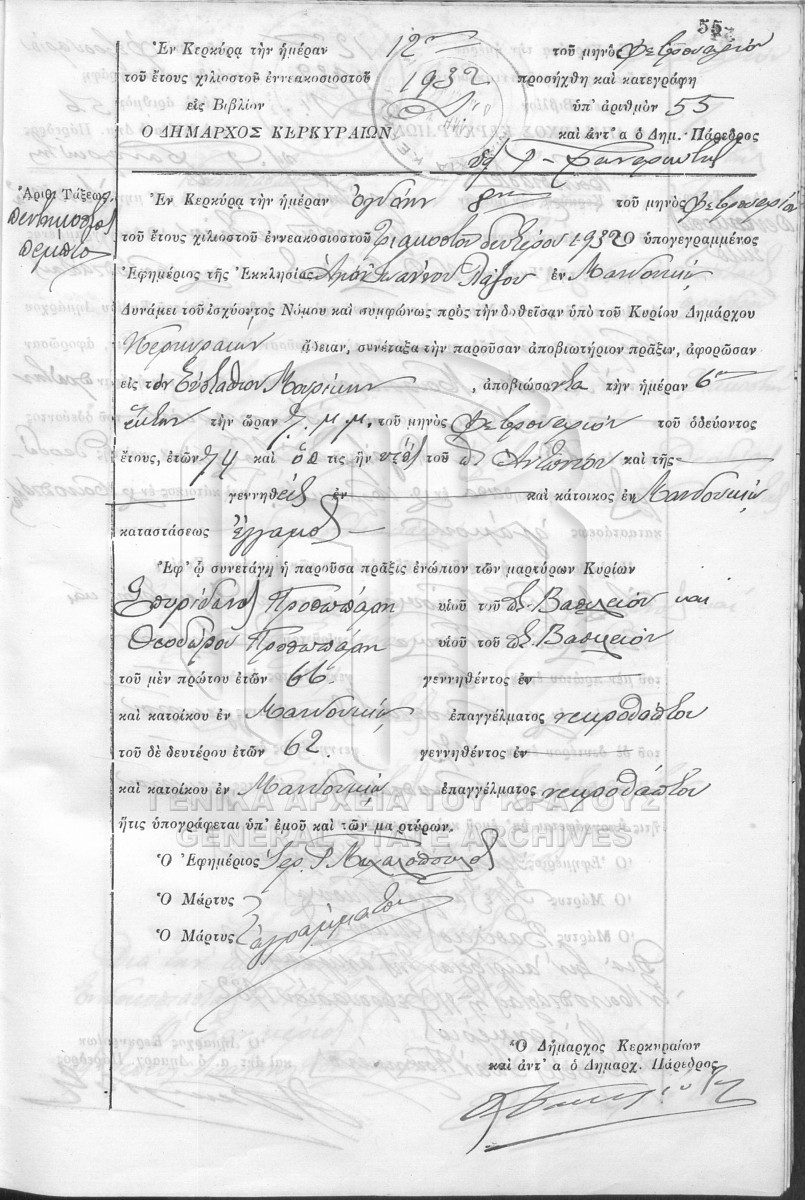 55
Ἐν Κερκύρᾳ τὴν ἡμέραν 12ην τοῦ μηνὸς Φεβρουαρίου
τοῦ ἔτους χιλιοστοῦ ἐννεακοσιοστοῦ 1932 προσήχθη καὶ κατεγράφη
εἰς Βιβλίον ὑπ' ἀριθμὸν 55
Ο ΔΗΜΑΡΧΟΣ ΚΕΡΚΥΡΑΙΩΝ καὶ ἀντ' α ὁ Δημ. Πάρεδρος
Ἀριθ. Τάξεως
πεντηκοστὸς
πέμπτος
Ἐν Κερκύρᾳ τὴν ἡμέραν ὀγδόην 8ην τοῦ μηνὸς Φεβρουαρίου
τοῦ ἔτους χιλιοστοῦ ἐννεακοσιοστοῦ τριακοστοῦ δευτέρου 1932 Ὁ ὑπογεγραμμένος
Ἐφημέριος τῆς Ἐκκλησίας Λάζου ἐν Μανδουκίῳ
Δυνάμει τοῦ ἰσχύοντος Νόμου καὶ συμφώνως πρὸς τὴν δοθεῖσαν ὑπὸ τοῦ Κυρίου Δημάρχου
Κερκυραίων ἄδειαν, συνέταξα τὴν παροῦσαν ἀποβιωτήριον πρᾶξιν, ἀφορῶσαν
εἰς τὸν Εὐστάθιον Μουρίκην, ἀποβιώσαντα τὴν ἡμέραν 6ην
ἕκτην τὴν ὥραν 7 μ.μ. τοῦ μηνὸς Φεβρουαρίου τοῦ ὁδεύοντος
ἔτους, ἐτῶν 74 καὶ ὅς τις ἦν υἱὸς τοῦ Ἀντωνίου καὶ τῆς
γεννηθεὶς ἐν καὶ κάτοικος ἐν Μανδουκίῳ
καταστάσεως ἔγγαμος
Ἐφ' ᾧ συνετάγη ἡ παροῦσα πρᾶξις ἐνώπιον τῶν μαρτύρων Κυρίων
Σπυρίδωνος Προβατάρη υἱοῦ τοῦ Βασιλείου καὶ
Θεοδώρου Προβατάρη υἱοῦ τοῦ Βασιλείου
τοῦ μὲν πρώτου ἐτῶν 66 γεννηθέντος ἐν
καὶ κατοίκου ἐν Μανδουκίῳ ἐπαγγέλματος νεκροθάπτου
τοῦ δὲ δευτέρου ἐτῶν 62 γεννηθέντος ἐν
καὶ κατοίκου ἐν Μανδουκίῳ ἐπαγγέλματος νεκροθάπτου
ΓΕΝΙΚΑ ΑΡΧΕΙΑ ΤΟΥ ΚΡΑΤΟΥΣ
ἥτις ὑπογράφεται ὑπ' ἐμοῦ καὶ τῶν μαρτύρων.
GENERAL STATE ARCHIVES
Ὁ Ἐφημέριος Ἱερ. Μιχαλόπουλος
Ὁ Μάρτυς
Ὁ Μάρτυς ἀγράμματοι
Ὁ Δήμαρχος Κερκυραίων
καὶ ἀντ' α ὁ Δημαρχ. Πάρεδρος